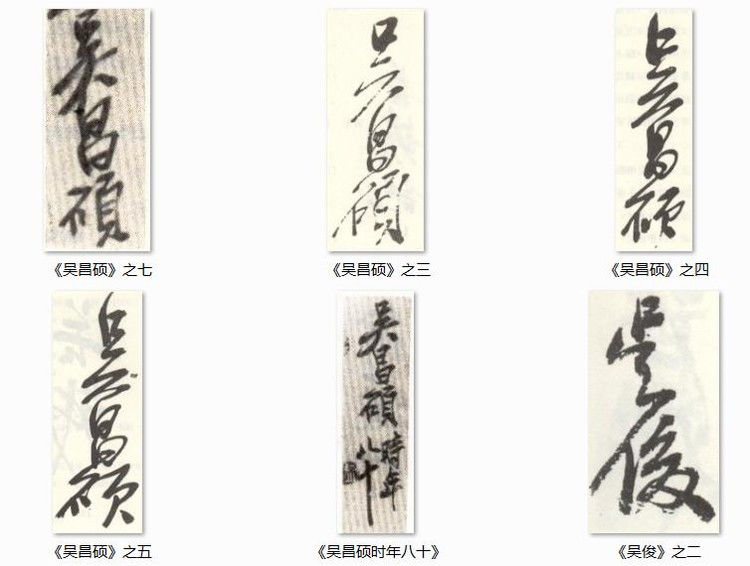 吴昌碩
吴昌碩
吴昌碩
《吴昌硕》之七
《吴昌硕》之三
《吴昌硕》之四
吴昌碩
吴昌碩
時年
八十
吴俊
《吴昌硕》之五
《吴昌硕时年八十》
《吴俊》之二